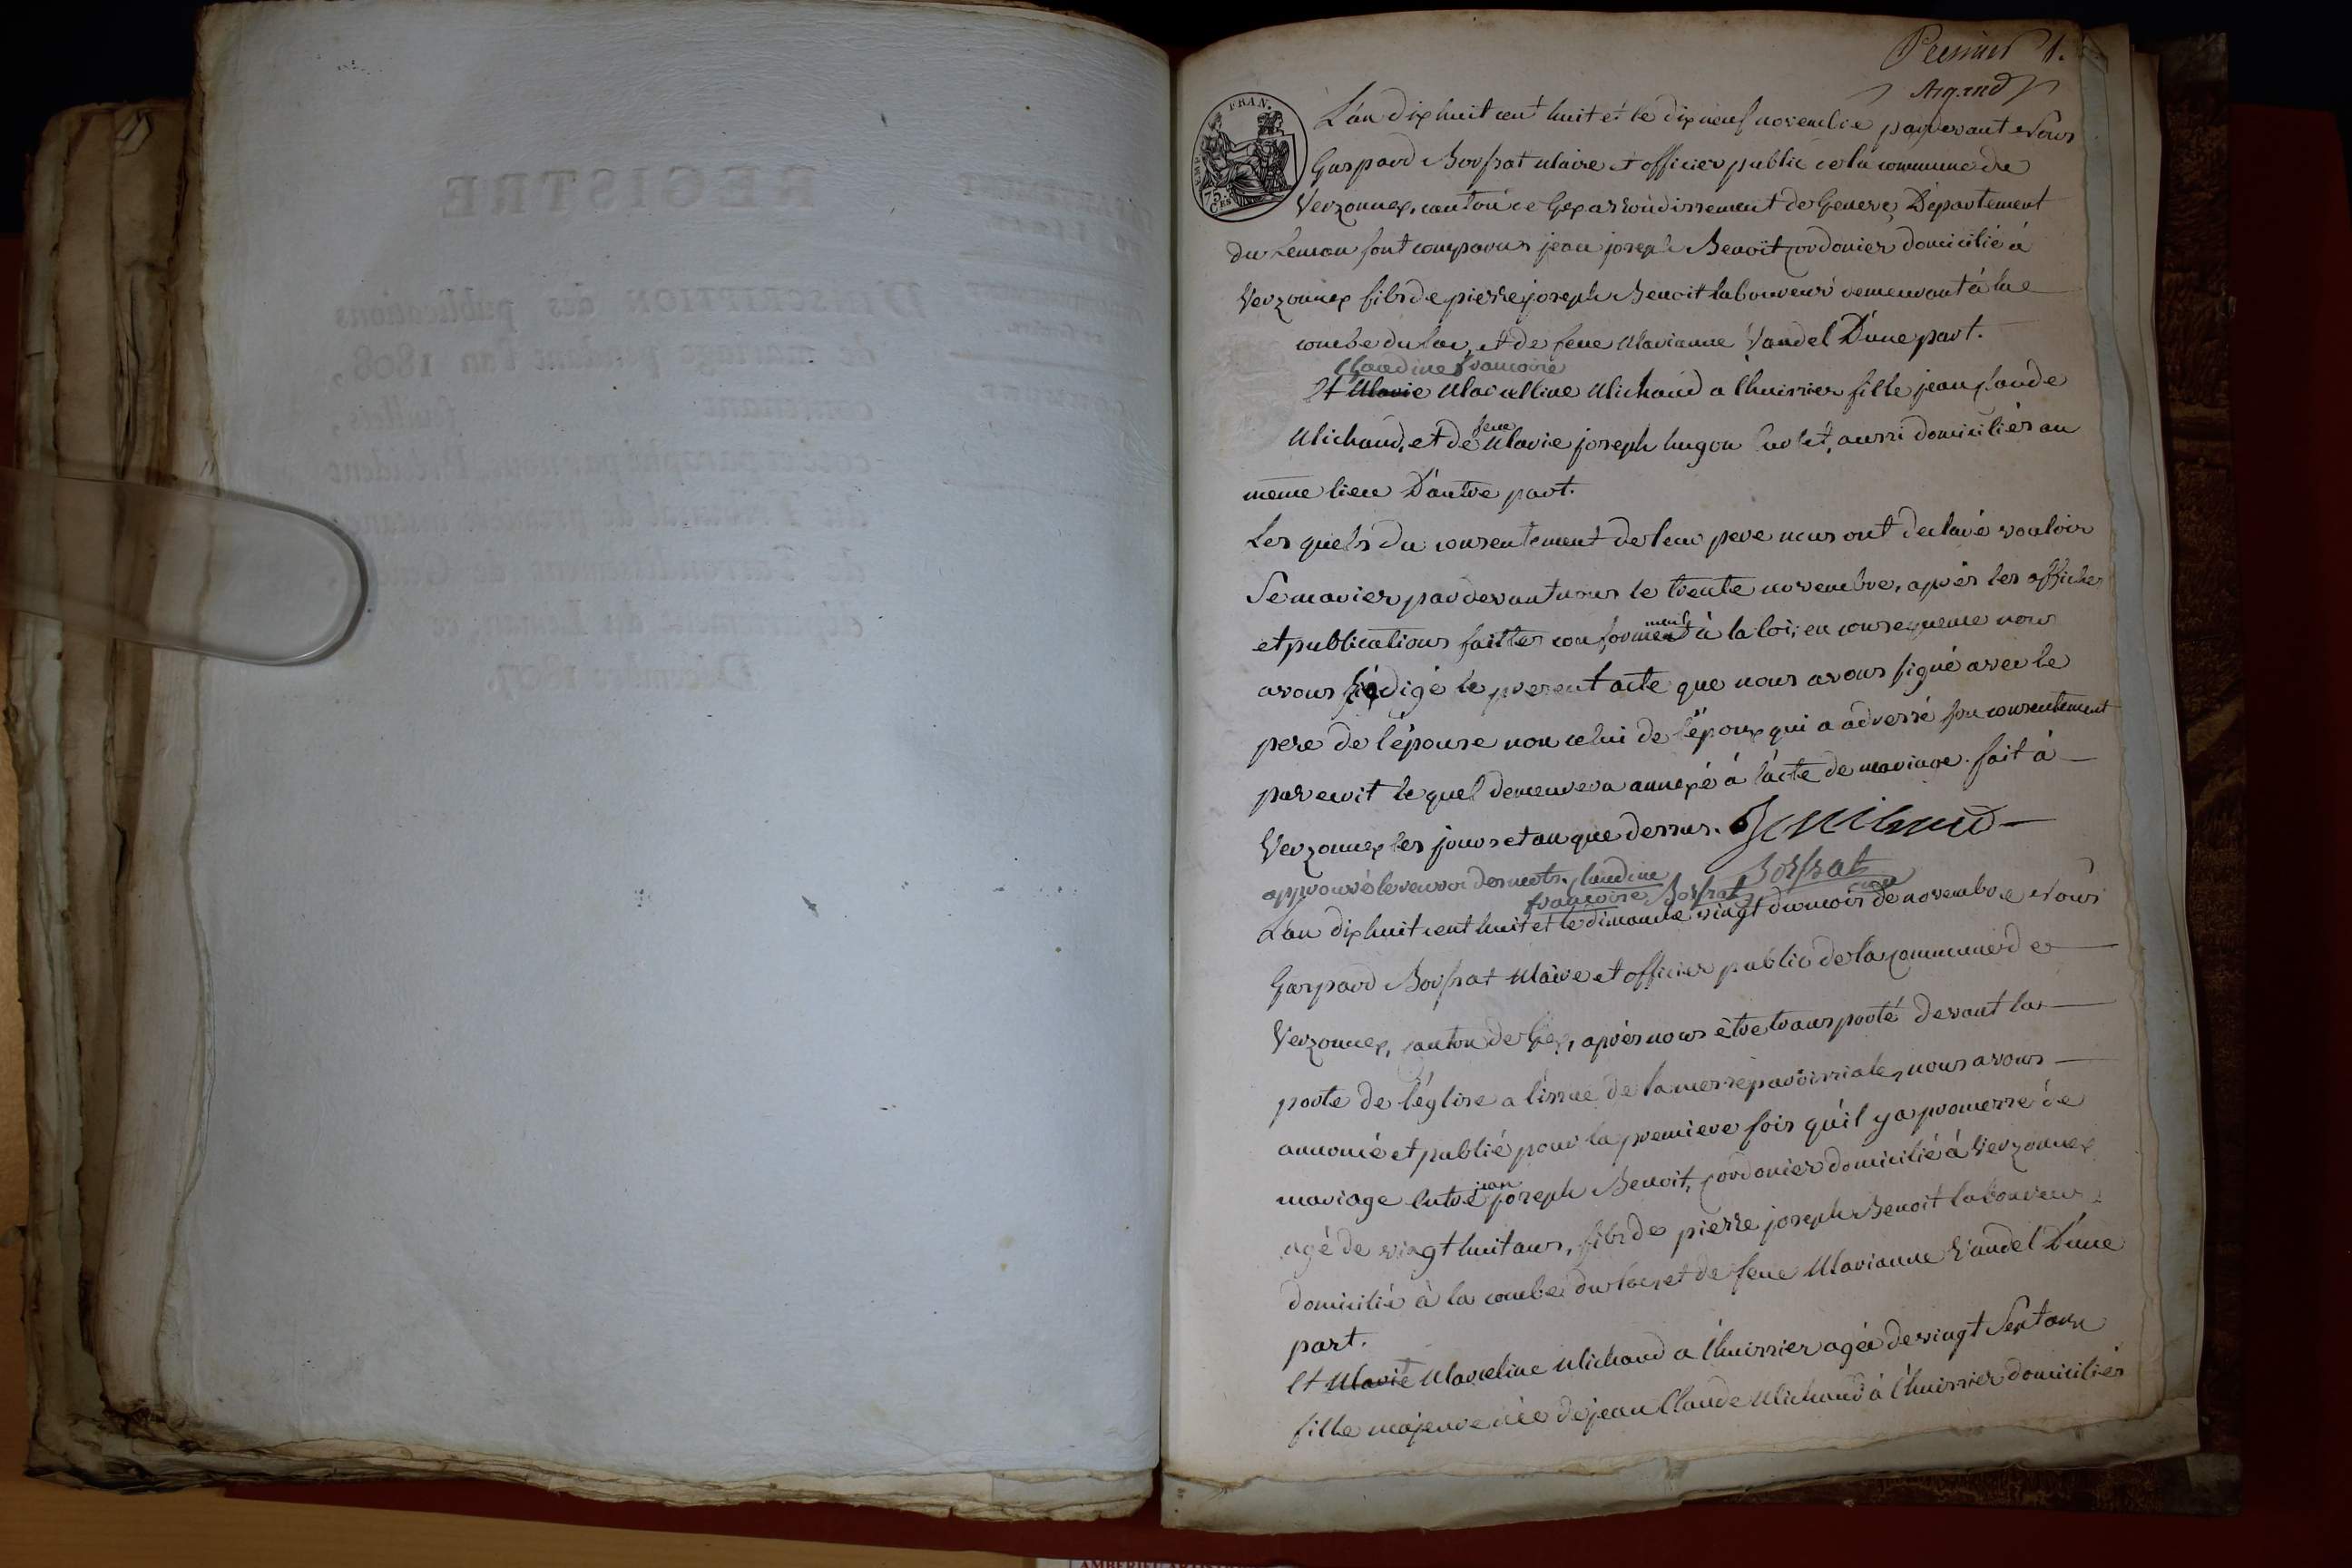 Premier 1.
Argand
L'an dix huit cent huit et le dix neuf novembre pardevant Nous
Gaspard Borssat Maire et officier public de la commune de
Verzonnex, canton de Gex arrondissement de Geneve, Departement
du Leman sont comparus jean joseph Benoit cordonier domicilié à
Verzonnex fils de pierre joseph Benoit laboureur demeurant à la
combe du lac, et de feue Marianne Vandel D'une part.
Claudine francoise
Et Marie Marcelline Michaud a lhuissier fille jean claude
Michaud, et de feue Marie joseph hugon, aussi domiciliés au
même lieu D'autre part.
Les quels du consentement de leur pere nous ont declaré vouloir
Se marier pardevant nous le trente novembre, après les affiches
et publications faittes conformement à la loi; en consequence nous
avons rédigé le present acte que nous avons signé avec le
pere de l'épouse non celui de l'époux qui a adressé son consentement
par ecrit le quel demeurera annexé à l'acte de mariage. fait à
Verzonnex les jours et an que dessus.
approuvé le renvoi des mots claudine Borssat
francoise Borssat
L'an dix huit cent huit et le dimanche vingt du mois de novembre Nous
Gaspard Borssat Maire et officier public de la commune de
Verzonnex, canton de Gex, après nous être transporté devant la
porte de l'église a l'issue de la messe paroissiale, nous avons
annoncé et publié pour la premiere fois qu'il y a promesse de
mariage Entre jean joseph Benoit, cordonier domicilié à Verzonnex
agé de vingt huit ans, fils de pierre joseph Benoit laboureur
domicilié à la combe du lac, et de feue Marianne Vandel D'une
part.
Et Marie Marceline Michaud a lhuissier agée de vingt Sept ans
fille majeure née de jean Claude Michaud à lhuissier domiciliés
REGISTRE
D'INSCRIPTION des publications
de mariage, pendant l'an 1808,
contenant feuillets,
coté et paraphé par nous, Président
du Tribunal de première instance
de l'arrondissement de Genève,
département du Léman, ce
Décembre 1807.
FRAN.
EMP.
75.
CES